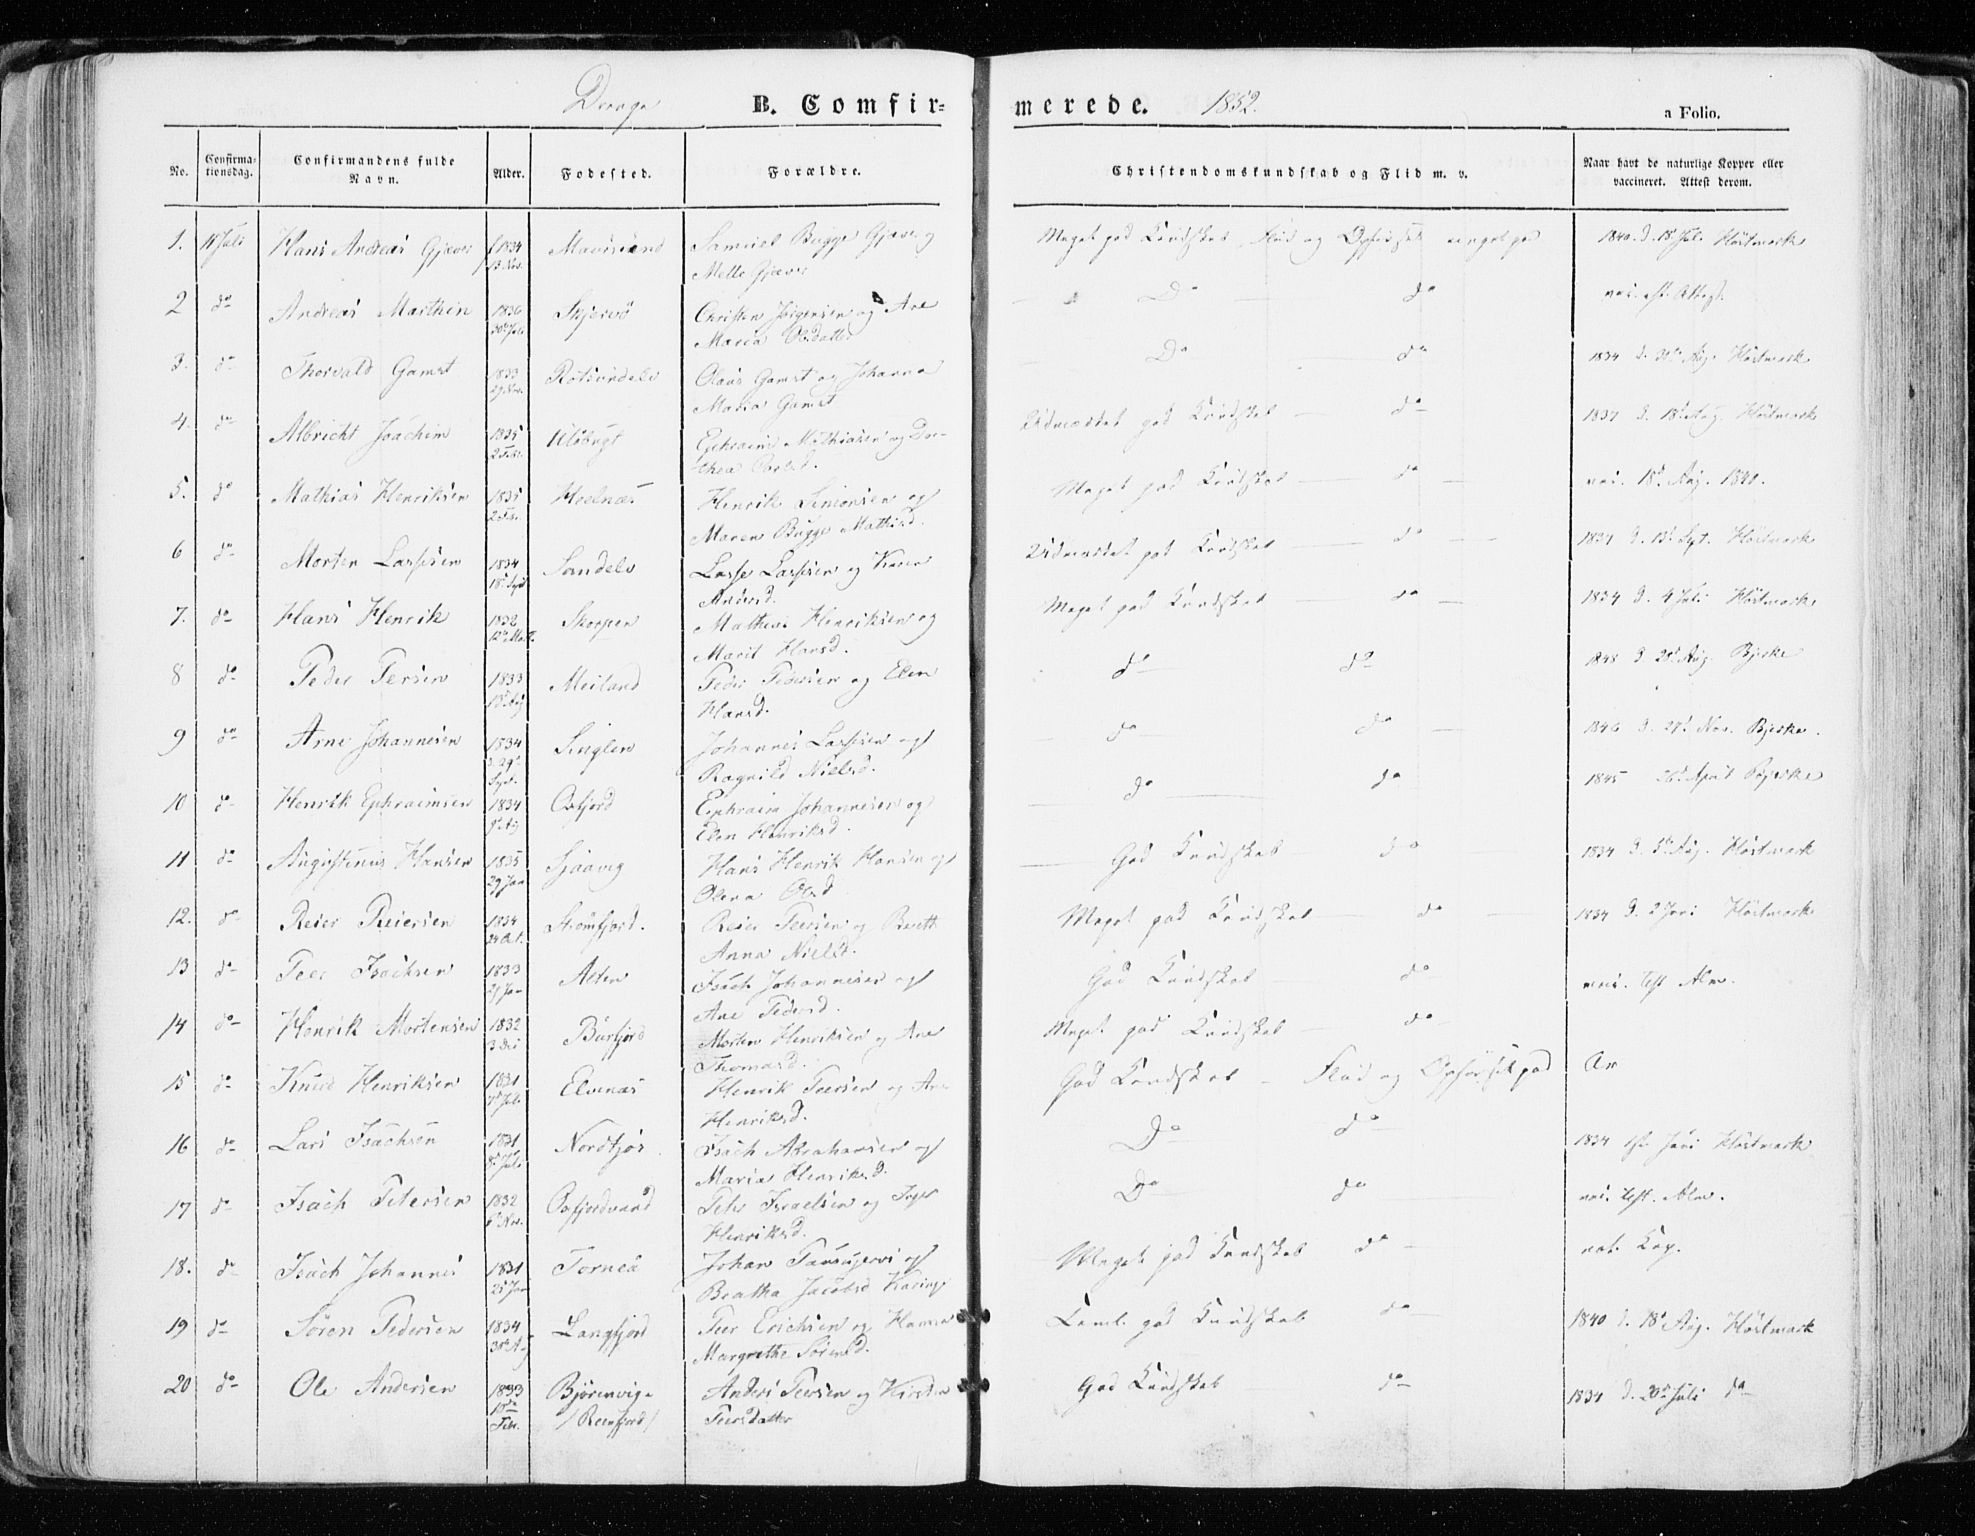 Drenge B. Comfirmerede. 1852. a Folio.
No. Confirmationsdag. Confirmandens fulde Navn. Alder. Fodested. Forældre. Christendomskundskab og Flid m. v. Naar havt de naturlige Kopper eller vaccineret. Attest derom.
1. 18 Juli Hans Andreas Gjæver f 1834 Maursund Samuel Bugge Gjæver og Meget god Kundskab, Flid og Opførsel meget god 1840. d. 18 Jul. Høstmark
13 Nov. Mette Gjæver
2 do Andreas Marthin 1836 Skjervö Christen Jörgensen og Ane Do do vac. Attest.
30 Maria Olsdatter
3. do Thorvald Gamst 1833 Rotsundelv Olaus Gamst og Johanna Do do 1834 d. Aug. Høstmark
29 Maria Gamst
4. do Albricht Joachim 1835 Klöbugt Ephraim Mathiasen og Do- Udmærket god Kundskab do 1837 d. 18 Aug. Høstmark
2 Feb. thea
5. do Mathias Henriksen 1835 Hoelnæs Henrik Simonsen og Meget god Kundskab do vac. 18d Aug. 1840.
2 Feb. Maren Bugge Mathisd.
6 do Morten Lassesen 1834 Sandelv Lasse Lassesen og Karen Udmærket god Kundskab do 1837 d. 13 Sept. Høstmark
18 Sept Andersd.
7. do Hans Henrik 1832 Skorpen Mathias Henriksen og Meget god Kundskab do 1834 d. 4 Juli Høstmark
12 Mart. Marit Hansd.
8 do Peder Persen 1833 Meiland Peder Pedersen og Elen do do 1848 d. 28d Aug. Bjerke
18 Aug Hansd.
9 do Arne Johannesen 1834 Singlen Johannes Lassesen og do do 1846 d. 27d Nov. Bjerke.
29 Sept. Ragnild Nielsd.
10 do Henrik Ephraimsen 1834 Oxfjord Ephraim Johannesen og do do 1845 26d April Bjerke
9 Aug Elen Henriksd.
11 do Augustinus Hansen 1835 Sjaavig Hans Henrik Hansen og God Kundskab do 1834 d. 5 Aug. Høstmark
29 Jan Olena Olsd
12. do Reier Reiersen 1834 Strömfjord. Reier Peersen og Berith Meget god Kundskab do 1834 d. 2 Juni Høstmark
24 Oct. Anna Nielsd.
13 do Peer Isachsen 1833 Alten Isach Johannesen og God Kundskab do vac. test Alm.
27 Jan Ane Pedersd.
14 do Henrik Mortensen 1832 Burfjord Morten Henriksen og Ane Meget god Kundskab do
3 Dec Thomasd.
15 do Knud Henriksen 1831 Elvenæs Henrik Peersen og Ane God Kundskab Flid og Opførsel god
Henriksd.
16 do Lars Isachsen 1831 Nordfjos Isach Abrahamsen og Do do 1834 Juni Høstmark
8 Juli Maria Henriksd.
17 do Isach Petersen 1832 Oxfjordvand Peter Israelsen og Inger Do do vac. test. Alm.
6 Nov. Henriksd.
18. do Isach Johannes 1831 Torneå Johan og Meget god Kundskab do nat. Kop.
25 Jan Beatha Jacobsd
19 do Sören Pedersen 1834 Langfjord Peer Erichsen og Hanna Teml. god Kundskab do 1840 d. 18d Aug. Høstmark
30 Aug Margrethe Sörensd.
20 do Ole Andersen 1833 Björnevig Anders Peersen og Kirsten God Kundskab do 1834 d. 20 Juli do
18de Febr. /Reenfjord/ Peersdatter